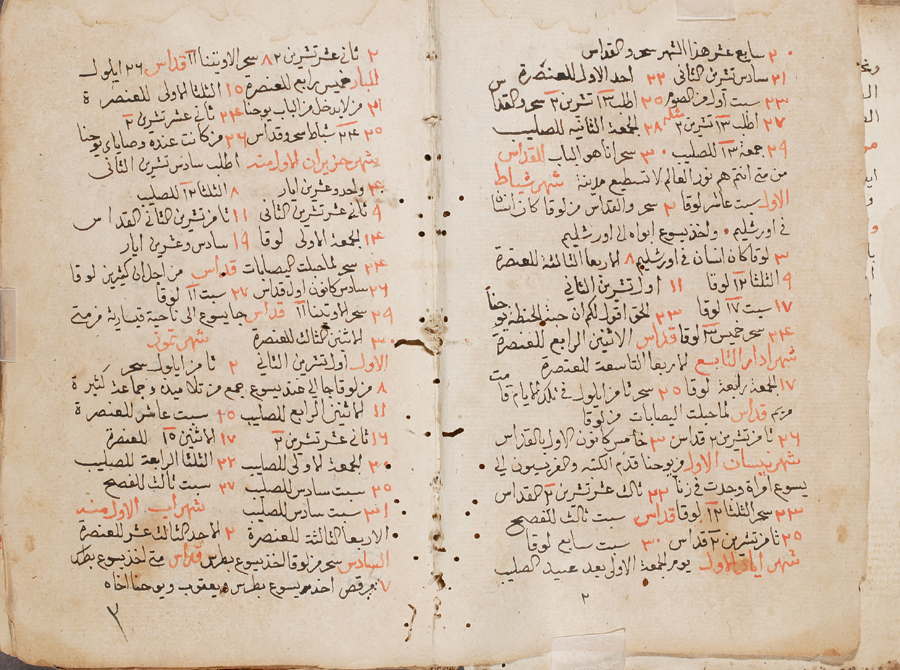 ٢٠ سابع عشر هذا الشهر سحر والقداس
٢١ سادس تشرين الثاني ٢٢ احد الاول للعنصرة س
٢٣ سبت اول من الصوم ٢٥ اطلب ١٣ تشرين ٢ سحر والقدا
٢٧ اطلب ١٣ تشرين ٢ مثله ٢٨ الجمعة الثانيه للصليب
٢٩ جمعة ١٣ للصليب ٣٠ سحر انا هو الباب القداس
من متى انتم هم نور العالم لا تستطيع مدينة شهر شباط
الاول سبت عاشر لوقا ٢ سحر والقداس من لوقا كان انسانا
في اورشليم واخذ يسوع ابواه الى اورشليم
٣ لوقا كان انسان في اورشليم ٨ الاربعا الثالثة للعنصرة
٩ الثلثا ١٢ لوقا ١١ اول تشرين الثاني
١٧ سبت ١٧ لوقا ٢٣ الحق اقول لكم ان حبة الحنطة يوحنا
٢٤ سحر خميس ٣ لوقا قداس الاثنين الرابع للعنصرة
شهر ادار التاسع الاربعا التاسعة للعنصرة
١٧ الجمعة رابعة لوقا ٢٥ سحر ثامن ايلول في تلك الايام قامت
مريم قداس لما حبلت اليصابات من لوقا
٢٦ ثامن تشرين ٢ قداس ٣٠ خامس كانون الاول بالقداس
شهر نيسان الاول من يوحنا قدم الكتبه والفريسيون الى
يسوع امراة وجدت في زنا ٢٢ ثالث عشر تشرين ٢ القداس
٢٣ سحر الثلثا ١٢ لوقا قداس سبت ثالث للفصح
٢٥ ثامن تشرين ٢ قداس ٣٠ سبت سابع لوقا
شهر ايار الاول يوم الجمعة الاولى بعد عيد الصليب
٢
٢ ثاني عشر تشرين ٢ ٨ سحر الاوتينا ١١ قداس ٢٦ ايلول
المبار خميس رابع للعنصرة ١٥ الثلثا الاولى للعنصرة
٢١ من لا يدخل من الباب يوحنا ٢٤ ثاني عشر تشرين ٢
٢٥ ٢٤ شباط سحر وقداس ٢٦ من كانت عنده وصاياي يوحنا
شهر حزيران الاول منه اطلب سادس تشرين الثاني
٤ واحد وعشرين ايار ٨ الثلثا ١٢ للصليب
٩ ثاني عشر تشرين الثاني ١١ ثامن تشرين الثاني القداس
١٤ الجمعة الاولى لوقا ١٩ سادس وعشرين ايار
٢٤ سحر لما حبلت اليصابات قداس من اجل ان كثيرين لوقا
٢٦ سادس كانون اول قداس ٢٧ سبت ١١ لوقا
٢٩ سحر الاوتينا ١١ قداس جا يسوع الى ناحية قيسارية من متى
٣٠ الاثنين الثالث للعنصرة شهر تموز
الاول اول تشرين الثاني ٢ ثامن ايلول سحر
٨ من لوقا جا الى عند يسوع جمع من تلاميذه وجماعة كثيرة
١١ الاثنين الرابع للصليب ١٥ سبت عاشر للعنصرة
١٦ ثاني عشر تشرين ٢ ١٧ الاثنين ١٥ للعنصرة
٢٠ الجمعة الاولى للصليب ٢٢ الثلثا الرابعة للصليب
٢٥ سبت سادس للصليب ٢٧ سبت ثالث للفصح
٣١ سبت سادس للصليب شهر اب الاول منه
الاربعا الثالثة للعنصرة ٢ الاحد الثالث عشر للعنصرة
السادس سحر من لوقا اخذ يسوع بطرس قداس متى اخذ يسوع بطرس
٧ مرقص احد يسوع بطرس ويعقوب ويوحنا اخاه
٢